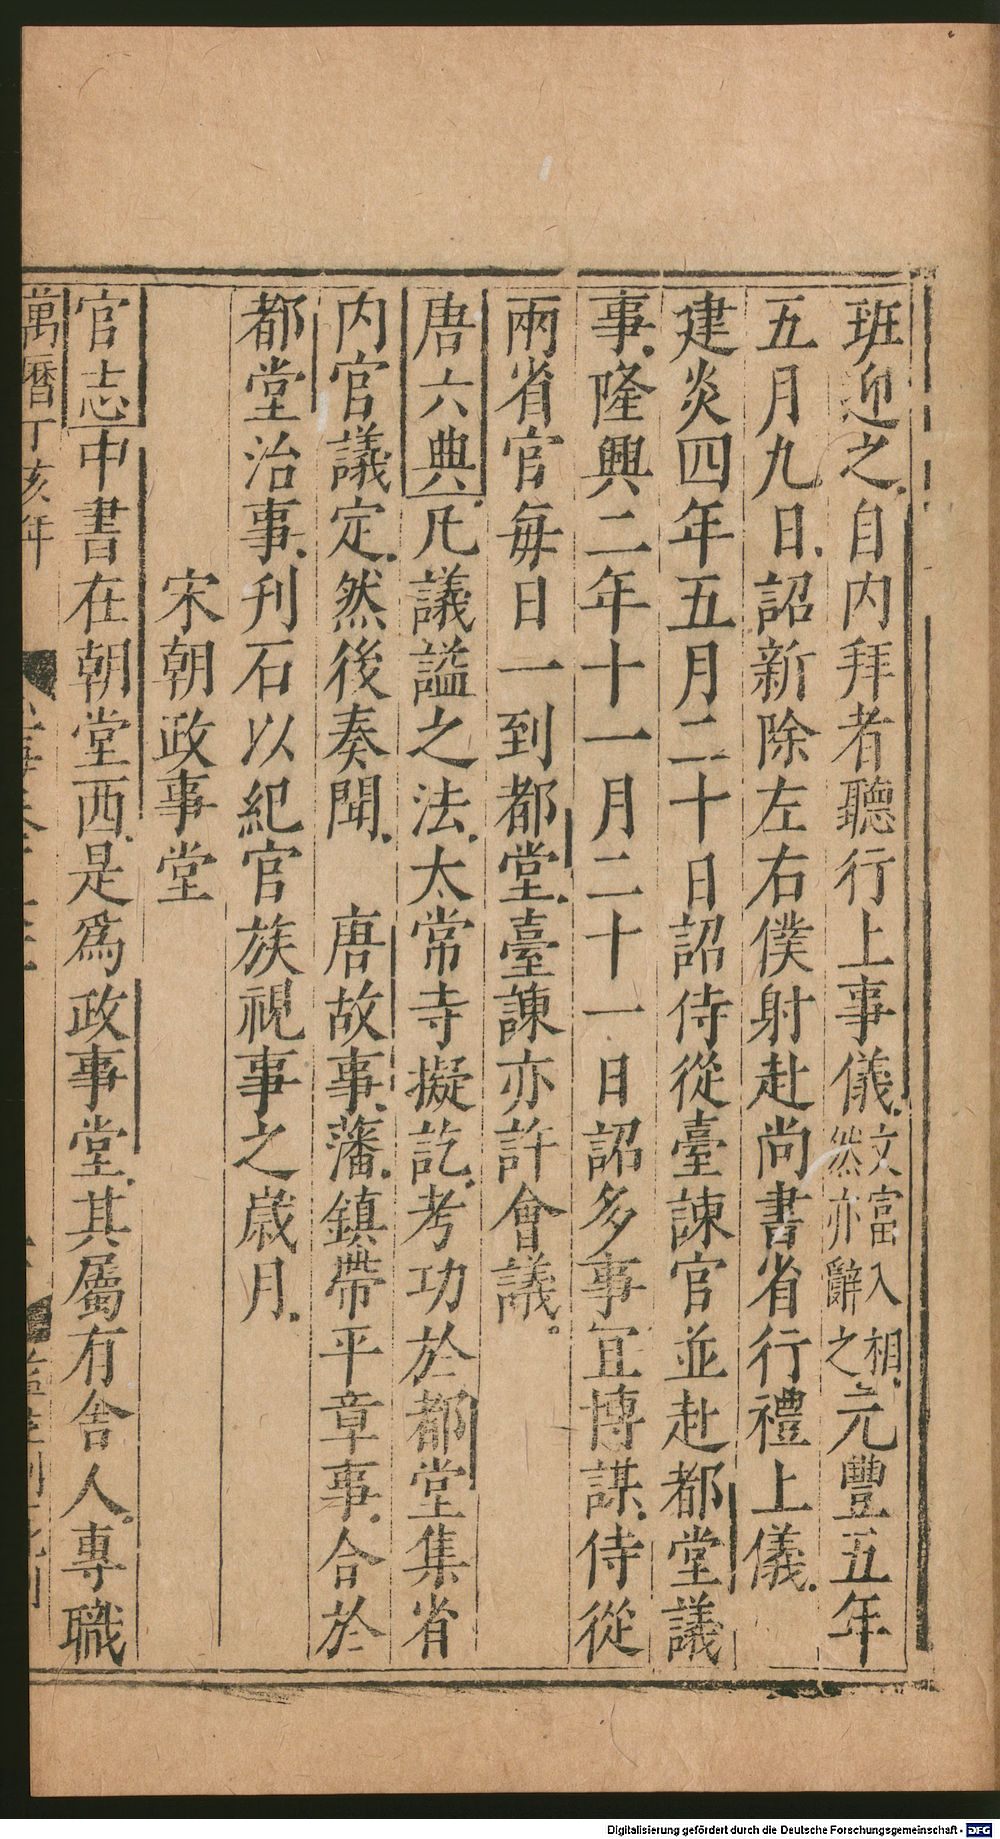 班迎之自内拜者聽行上事儀文富入相然亦辭之元豐五年
五月九日詔新除左右僕射赴尚書省行禮上儀
建炎四年五月二十日詔侍從臺諫官並赴都堂議
事隆興二年十一月二十一日詔多事宜博謀侍從
兩省官每日一到都堂臺諫亦許會議
唐六典凡議謚之法太常寺擬訖考功於都堂集省
内官議定然後奏聞 唐故事藩鎮帶平章事合於
都堂治事刋石以紀官族視事之歲月
宋朝政事堂
官志中書在朝堂西是爲政事堂其屬有舎人專職
萬曆丁亥年
Digitalisierung gefördert durch die Deutsche Forschungsgemeinschaft - DFG